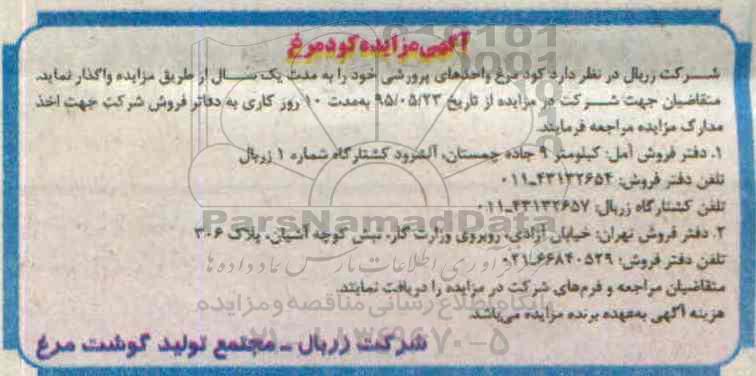 آگهی مزایده کود مرغ
شرکت زربال در نظر دارد کود مرغ واحدهای پرورشی خود را به مدت یک سال از طریق مزایده واگذار نماید.
متقاضیان جهت شرکت در مزایده از تاریخ ۹۵/۰۵/۲۳ به‌مدت ۱۰ روز کاری به دفاتر فروش شرکت جهت اخذ
مدارک مزایده مراجعه فرمایند.
۱. دفتر فروش آمل: کیلومتر ۹ جاده چمستان، آلشرود کشتارگاه شماره ۱ زربال
تلفن دفتر فروش: ۴۳۱۳۲۶۵۴-۰۱۱
تلفن کشتارگاه زربال: ۴۳۱۳۲۶۵۷-۰۱۱
ParsNamadData
۲. دفتر فروش تهران: خیابان آزادی، روبروی وزارت کار، نبش کوچه آشیان، پلاک ۳۰۶
تلفن دفتر فروش: ۶۶۸۴۰۵۲۹-۰۲۱
فرآوری اطلاعات پارس نماد داده ها
متقاضیان مراجعه و فرم‌های شرکت در مزایده را دریافت نمایند.
پایگاه اطلاع رسانی مناقصه و مزایده
هزینه آگهی به‌عهده برنده مزایده می‌باشد.
شرکت زربال - مجتمع تولید گوشت مرغ